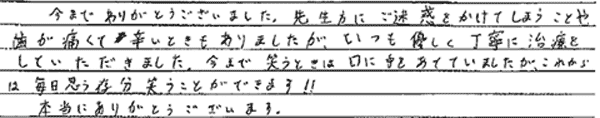 今までありがとうございました。先生方にご迷惑をかけてしまうことや
歯が痛くて辛いときもありましたが、いつも優しく丁寧に治療を
していただきました。今まで笑うときは口に手をあてていましたが、これから
は毎日思う存分笑うことができます!!
本当にありがとうございます。